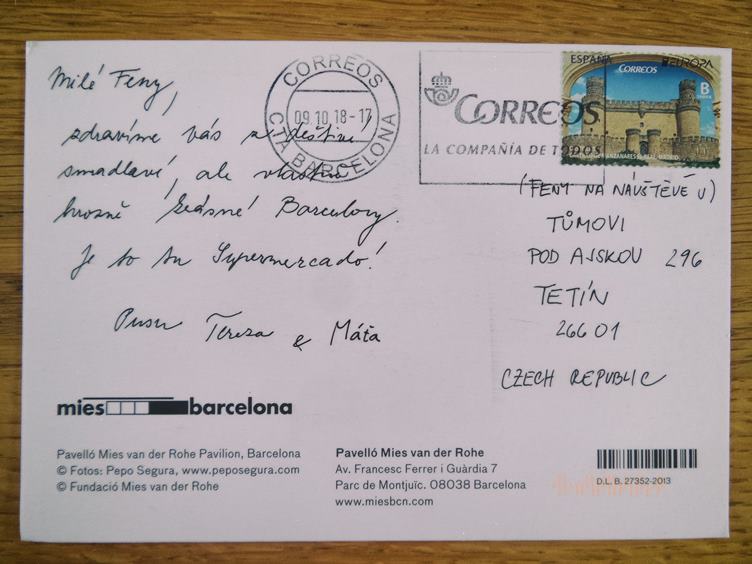 Milé Feny,
zdravíme vás z deštivé
smadlaví, ale vlastně
hrozně krásné Barcelony.
Je to tu Supermercado!
Pusu Tereza & Máťa
CORREOS
09.10.18-17
CTA BARCELONA
CORREOS
LA COMPAÑÍA DE TODOS
ESPAÑA EUROPA
CORREOS
B
MANZANARES EL REAL, MADRID
(FENY NA NÁVŠTĚVĚ U)
TŮMOVI
POD AJSKOU 296
TETÍN
26601
CZECH REPUBLIC
mies barcelona
Pavelló Mies van der Rohe Pavilion, Barcelona
© Fotos: Pepo Segura, www.peposegura.com
© Fundació Mies van der Rohe
Pavelló Mies van der Rohe
Av. Francesc Ferrer i Guàrdia 7
Parc de Montjuïc. 08038 Barcelona
www.miesbcn.com
D.L. B. 27352-2013